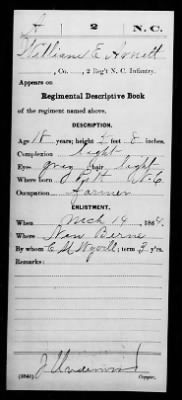 A 2 N.C.
William E Arnett
, Co. , 2 Reg't N. C. Infantry.
Appears on
Regimental Descriptive Book
of the regiment named above.
DESCRIPTION.
Age 18 years; height 5 feet 8 inches.
Complexion light
Eyes grey; hair light
Where born Pitt N.C
Occupation Farmer
ENLISTMENT.
When Mch 14, 1864.
Where New Berne
By whom E M; term 3 y'rs.
Remarks:
J Underwood
Copyist.